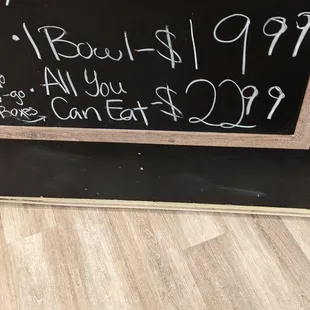 • 1 Bowl - $19 99
• All You
Can Eat - $22 99
-go
Boxes